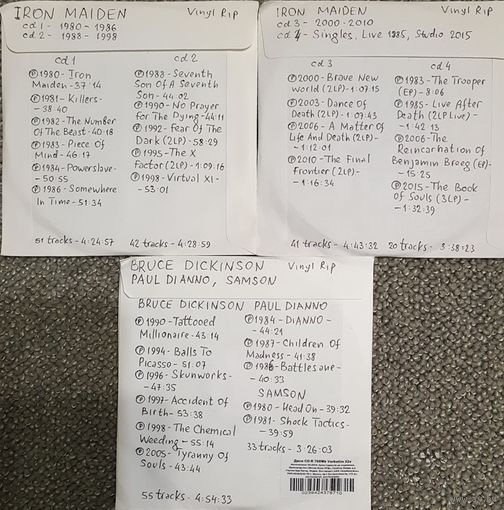 IRON MAIDEN Vinyl Rip
cd 1 - 1980 - 1986
cd 2 - 1988 - 1998
cd 1
℗1980 - Iron
Maiden - 37 14
℗1981 - Killers -
- 38 40
℗1982 - The Number
Of The Beast - 40 18
℗1983 - Piece Of
Mind - 46-17
℗1984 - Powerslave -
- 50:55
℗1986 - Somewhere
In Time - 51:34
51 tracks - 4:24:57
cd 2
℗1988 - Seventh
Son Of A Seventh
Son - 44:02
℗1990 - No Prayer
For The Dying - 44:11
℗1992 - Fear Of The
Dark (2LP) - 58:29
℗1995 - The X
Factor (2LP) - 1:09:16
℗1998 - Virtual XI -
- 53:01
42 tracks - 4:28:59
IRON MAIDEN Vinyl Rip
cd 3 - 2000 - 2010
cd 4 - Singles, Live 1985, Studio 2015
cd 3
℗2000 - Brave New
World (2LP) - 1:07:15
℗2003 - Dance Of
Death (2LP) - 1:07:43
℗2006 - A Matter Of
Life And Death (2LP) -
- 1:12:01
℗2010 - The Final
Frontier (2LP) -
- 1:16:34
41 tracks - 4:43:32
cd 4
℗1983 - The Trooper
(EP) - 8:06
℗1985 - Live After
Death (2LP Live) -
- 1:42:13
℗2006 - The
Reincarnation Of
Benjamin Breeg (EP) -
- 15:25
℗2015 - The Book
Of Souls (3LP) -
- 1:32:39
20 tracks - 3:38:23
BRUCE DICKINSON Vinyl Rip
PAUL DIANNO, SAMSON
BRUCE DICKINSON
℗1990 - Tattooed
Millionaire - 43:14
℗1994 - Balls To
Picasso - 51:07
℗1996 - Skunworks -
- 47:35
℗1997 - Accident Of
Birth - 53:38
℗1998 - The Chemical
Weeding - 55:14
℗2005 - Tyranny Of
Souls - 43:44
55 tracks - 4:54:33
PAUL DIANNO
℗1984 - DIANNO -
- 44:21
℗1987 - Children Of
Madness - 41:38
℗1986 - Battlesone -
- 40:33
SAMSON
℗1980 - Head On - 39:32
℗1981 - Shock Tactics -
- 39:59
33 tracks - 3:26:03
Диск CD-R 700Mb Verbatim 52x